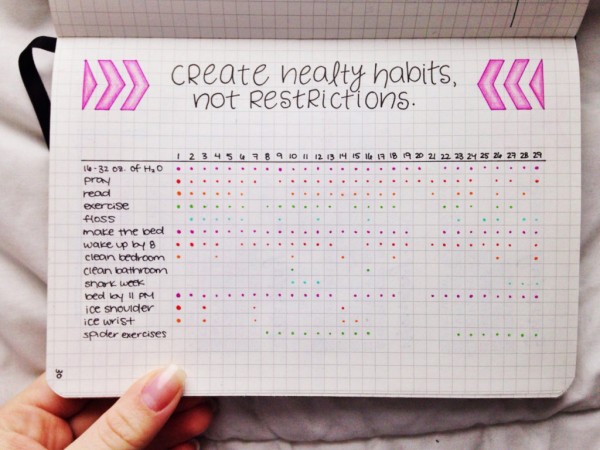 create healty habits,
not restrictions.
1 2 3 4 5 6 7 8 9 10 11 12 13 14 15 16 17 18 19 20 21 22 23 24 25 26 27 28 29
16-32 oz. of H₂O
pray
read
exercise
floss
make the bed
wake up by 8
clean bedroom
clean bathroom
shark week
bed by 11 PM
ice shoulder
ice wrist
spider exercises
30